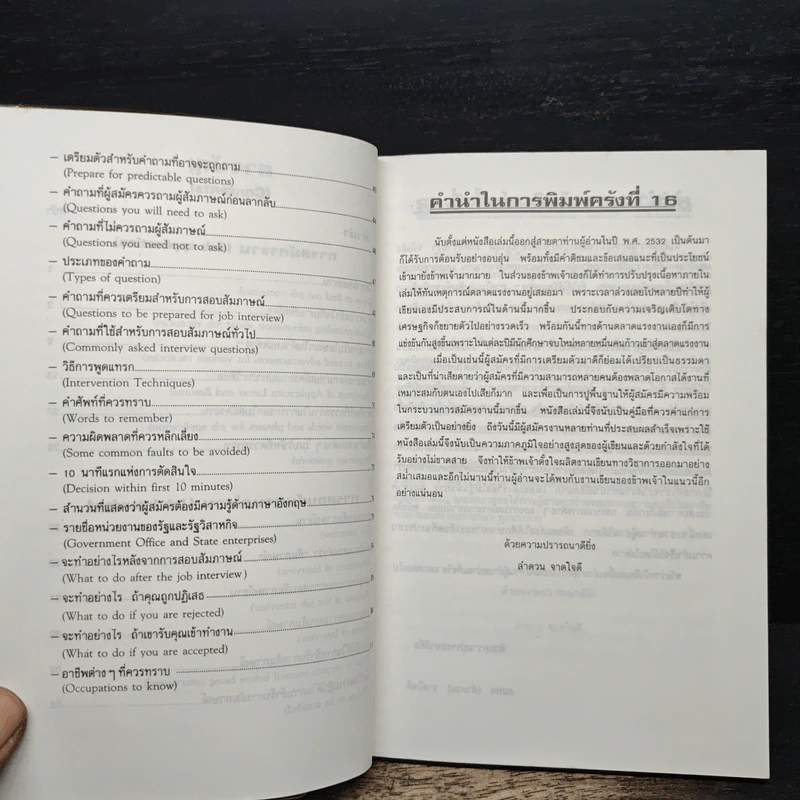 – เตรียมตัวสำหรับคำถามที่อาจจะถูกถาม
(Prepare for predictable questions)
– คำถามที่ผู้สมัครควรถามผู้สัมภาษณ์ก่อนลากลับ
(Questions you will need to ask)
– คำถามที่ไม่ควรถามผู้สัมภาษณ์
(Questions you need not to ask)
– ประเภทของคำถาม
(Types of question)
– คำถามที่ควรเตรียมสำหรับการสอบสัมภาษณ์
(Questions to be prepared for job interview)
– คำถามที่ใช้สำหรับการสอบสัมภาษณ์ทั่วไป
(Commonly asked interview questions)
– วิธีการพูดแทรก
(Intervention Techniques)
– คำศัพท์ที่ควรทราบ
(Words to remember)
– ความผิดพลาดที่ควรหลีกเลี่ยง
(Some common faults to be avoided)
– 10 นาทีแรกแห่งการตัดสินใจ
(Decision within first 10 minutes)
– สำนวนที่แสดงว่าผู้สมัครต้องมีความรู้ด้านภาษาอังกฤษ
– รายชื่อหน่วยงานของรัฐและรัฐวิสาหกิจ
(Government Office and State enterprises)
– จะทำอย่างไรหลังจากการสอบสัมภาษณ์
(What to do after the job interview)
– จะทำอย่างไร ถ้าคุณถูกปฏิเสธ
(What to do if you are rejected)
– จะทำอย่างไร ถ้าเขารับคุณเข้าทำงาน
(What to do if you are accepted)
– อาชีพต่าง ๆ ที่ควรทราบ
(Occupations to know)
คำนำในการพิมพ์ครั้งที่ 16
นับตั้งแต่หนังสือเล่มนี้ออกสู่สายตาท่านผู้อ่านในปี พ.ศ. 2532 เป็นต้นมา
ก็ได้รับการต้อนรับอย่างอบอุ่น พร้อมทั้งมีคำติชมและข้อเสนอแนะที่เป็นประโยชน์
เข้ามายังข้าพเจ้ามากมาย ในส่วนของข้าพเจ้าเองก็ได้ทำการปรับปรุงเนื้อหาภายใน
เล่มให้ทันเหตุการณ์ตลาดแรงงานอยู่เสมอมา เพราะเวลาล่วงเลยไปหลายปีทำให้ผู้
เขียนเองมีประสบการณ์ในด้านนี้มากขึ้น ประกอบกับความเจริญเติบโตทาง
เศรษฐกิจก็ขยายตัวไปอย่างรวดเร็ว พร้อมกันนี้ทางด้านตลาดแรงงานเองก็มีการ
แข่งขันสูงขึ้นเพราะในแต่ละปีมีนักศึกษาจบใหม่หลายหมื่นคนก้าวเข้าสู่ตลาดแรงงาน
เมื่อเป็นเช่นนี้ผู้สมัครที่มีการเตรียมตัวมาดีก็ย่อมได้เปรียบเป็นธรรมดา
และเป็นที่น่าเสียดายว่าผู้สมัครที่มีความสามารถหลายคนต้องพลาดโอกาสได้งานที่
เหมาะสมกับตนเองไปเสียก็มาก และเพื่อเป็นการปูพื้นฐานให้ผู้สมัครมีความพร้อม
ในกระบวนการสมัครงานนี้มากขึ้น หนังสือเล่มนี้จึงนับเป็นคู่มือที่ควรค่าแก่การ
เตรียมตัวเป็นอย่างยิ่ง ถึงวันนี้มีผู้สมัครงานหลายท่านที่ประสบผลสำเร็จเพราะใช้
หนังสือเล่มนี้จึงนับเป็นความภาคภูมิใจอย่างสูงสุดของผู้เขียนและด้วยกำลังใจที่ได้
รับอย่างไม่ขาดสาย จึงทำให้ข้าพเจ้าตั้งใจผลิตงานเขียนทางวิชาการออกมาอย่าง
สม่ำเสมอและอีกไม่นานนี้ท่านผู้อ่านจะได้พบกับงานเขียนของข้าพเจ้าในแนวนี้อีก
อย่างแน่นอน
ด้วยความปรารถนาดียิ่ง
ลำดวน จาดใจดี